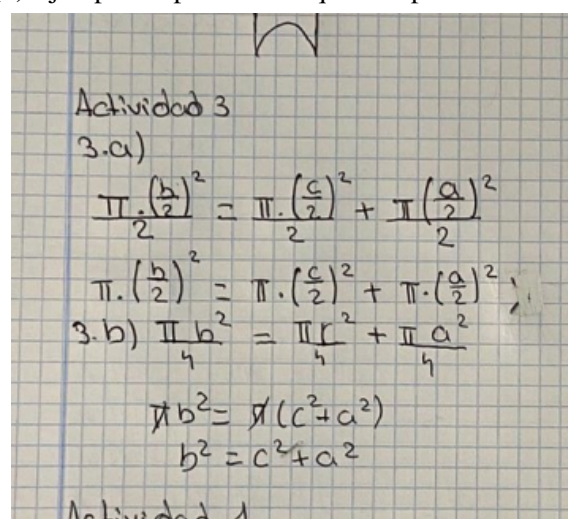 Actividad 3
3.a)
π·(b/2)²/2 = π·(c/2)²/2 + π(a/2)²/2
π·(b/2)² = π·(c/2)² + π·(a/2)²
3.b) πb²/4 = πr²/4 + πa²/4
πb² = π(c²+a²)
b² = c²+a²